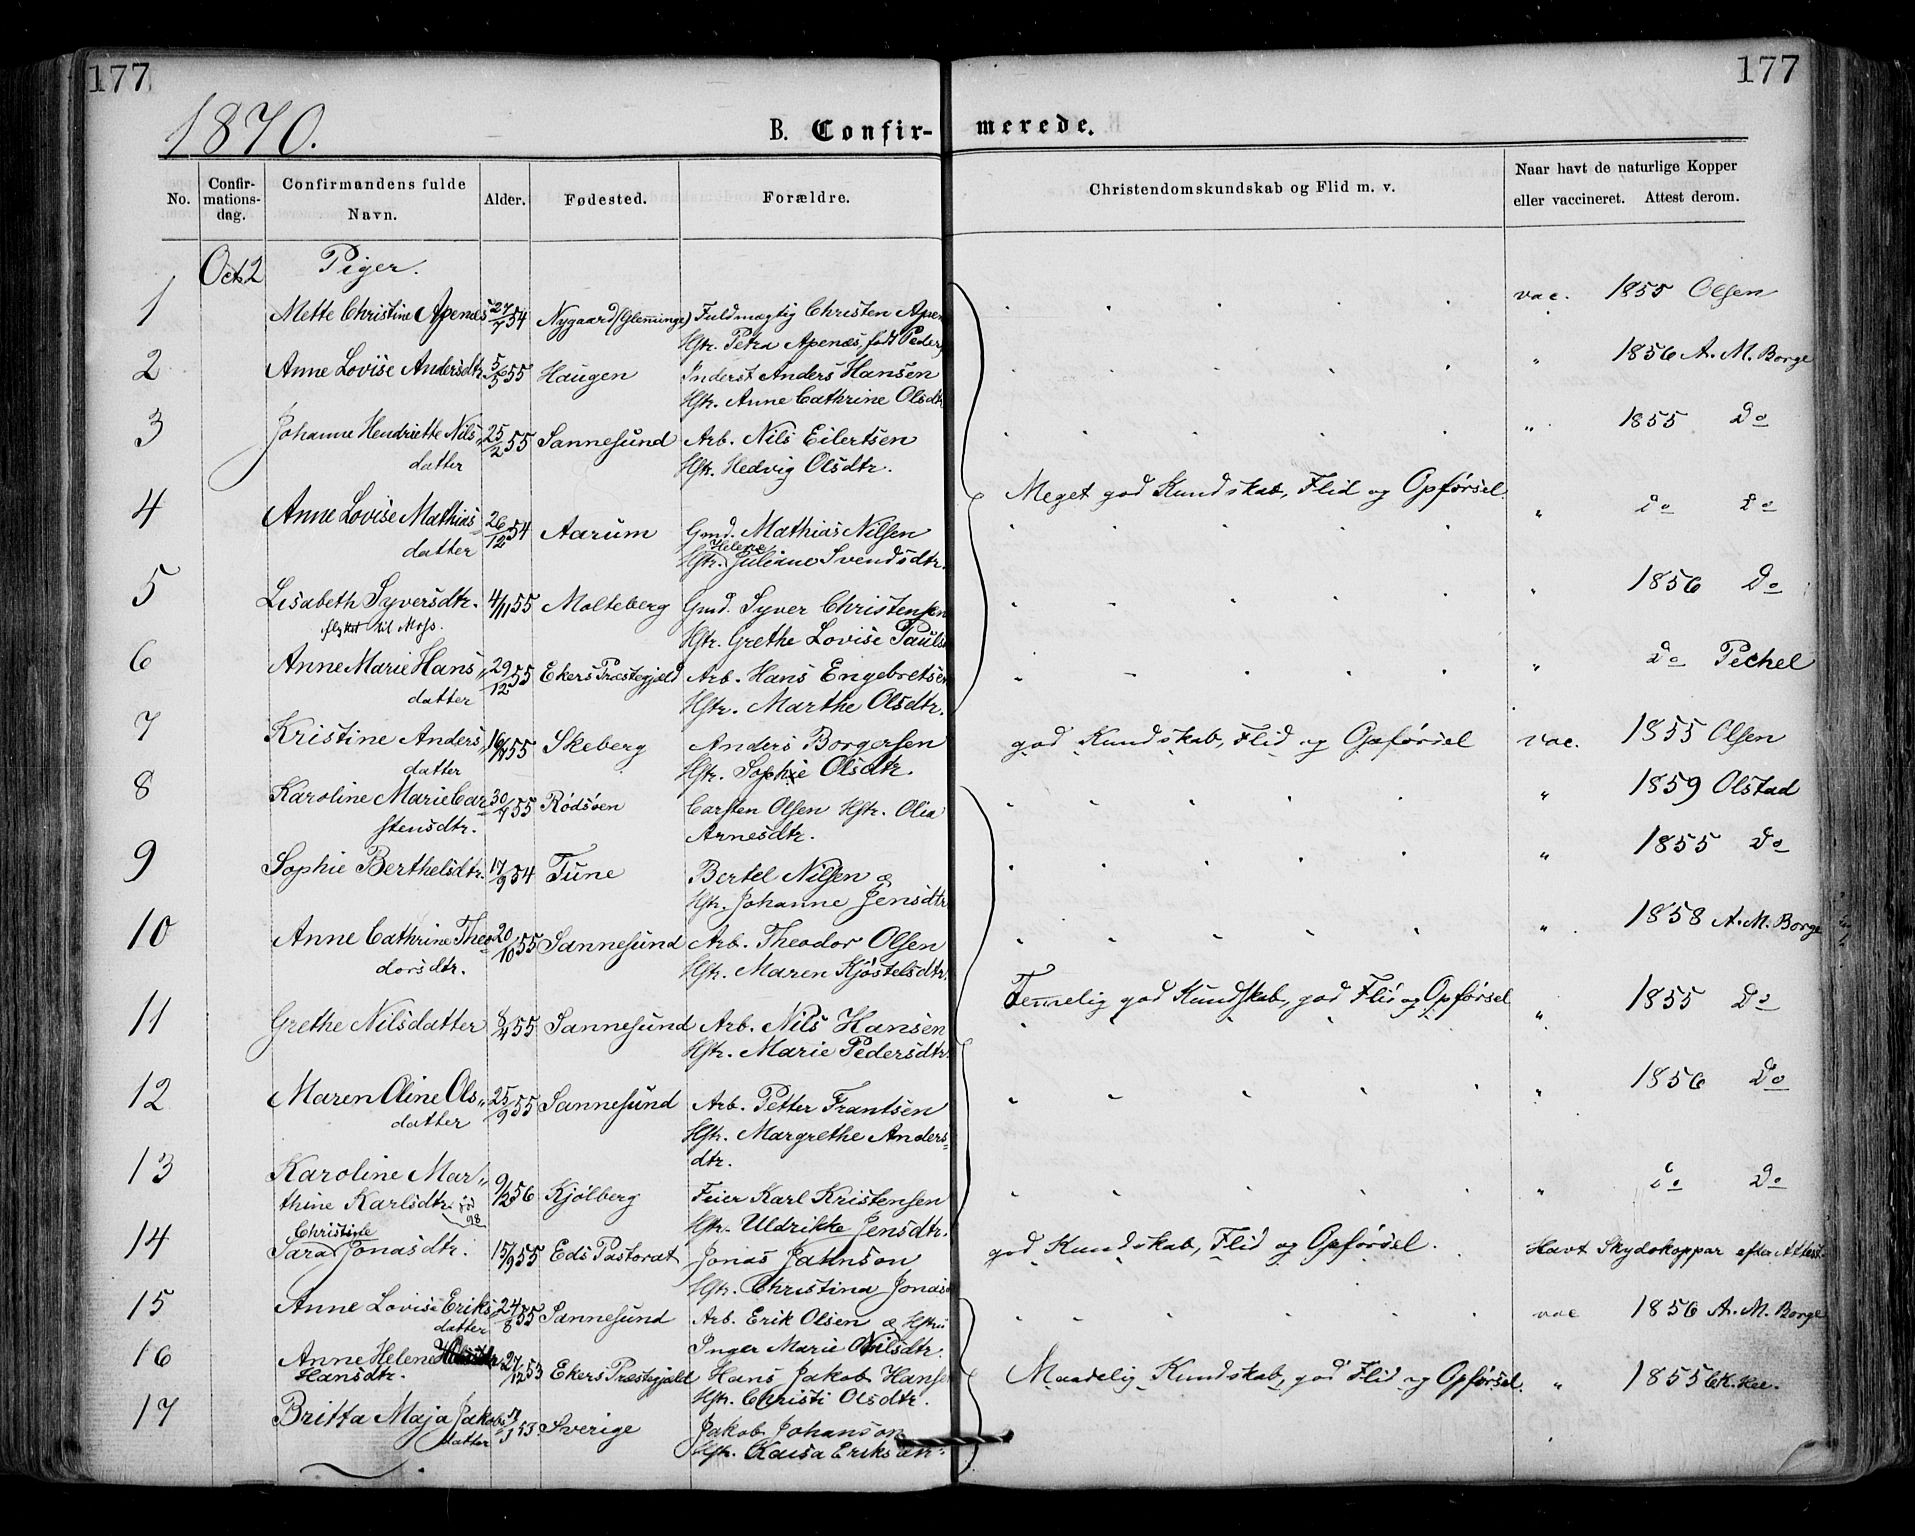 177
177
1870.
B. Confir-
merede.
No.
Confir-
mations-
dag.
Confirmandens fulde
Navn.
Alder.
Fødested.
Forældre.
Christendomskundskab og Flid m. v.
Naar havt de naturlige Kopper
eller vaccineret. Attest derom.
Oct 2 Piger.
1 Mette Christine Apenæs 27/7 54 Nygaard (Glemminge) Fuldmægtig Christen Apen vac. 1855 Olsen
Hstr. Petra Apenæs, født Peders
2 Anne Lovise Andersdtr. 5/5 55 Haugen Inderst Anders Hansen " 1856 A. M. Borge
Hstr. Anne Cathrine Olsdtr
3 Johanne Hendriette Nils- 25/2 55 Sannesund Arb. Nils Eilertsen " 1855 Do
datter Hstr. Hedvig Olsdtr.
Meget god Kundskab, Flid og Opførsel.
4 Anne Lovise Mathias- 26/12 54 Aarum Gmd. Mathias Nilsen " do do
datter Hstr. Helene Juliane Svendsdtr.
5 Lisabeth Syversdtr. 4/11 55 Molteberg Gmd. Syver Christensen " 1856 Do
flyttet til Moss. Hstr. Grethe Lovise Pauls
6 Anne Marie Hans- 29/12 55 Ekers Præstegjeld Arb. Hans Engebretsen " Do Pechel
datter Hstr. Marthe Olsdtr.
7 Kristine Anders- 55 Skeberg Anders Borgersen god Kundskab, Flid og Opførsel vac. 1855 Olsen
datter Hstr. Sophie Olsdtr.
8 Karoline Marie Car- 55 Rødsøen Carsten Olsen Hstr. Olia " 1859 Olstad
stensdtr. Arnesdtr.
9 Sophie Berthelsdtr. 17/9 54 Tune Bertel Nilsen & " 1855 Do
Hstr. Johanne Jensdtr
10 Anne Cathrine Theo- 20/10 55 Sannesund Arb. Theodor Olsen " 1858 A. M. Borge
dorsdtr. Hstr. Maren Kjøstelsdtr.
Temmelig god Kundskab, god Flid og Opførsel
11 Grethe Nilsdatter 55 Sannesund Arb. Nils Hansen " 1855 Do
Hstr. Marie Pedersdtr.
12 Maren Oline Ols- 25/9 55 Sannesund Arb. Petter Frantsen " 1856 Do
datter Hstr. Margrethe Anders-
dtr.
13 Karoline Mar- 9/12 56 Kjølberg Feier Karl Kristensen " do Do
thine Karlsdtr. Hstr. Uldrikke Jensdtr.
14 Sara Christine Jonasdtr. 15/9 55 Eds Pastorat Jonas Jahnson god Kundskab, Flid og Opførsel. Havt Skydskoppar efter Attest
Hstr. Christina Jonas
15 Anne Lovise Eriks- 24/8 55 Sannesund Arb. Erik Olsen & Hstru vac 1856 A. M. Borge
datter Inger Marie Nilsdtr.
16 Anne Helene 27/12 53 Ekers Præstegjeld Hans Jakob Hansen Maadelig Kundskab, god Flid og Opførsel. " 1855
Hansdtr. Hstr. Christi Olsdtr.
17 Britta Maja Jakobs- 53 Sverige Jakob Johanson
datter Hstr. Kaisa Eriksdtr.